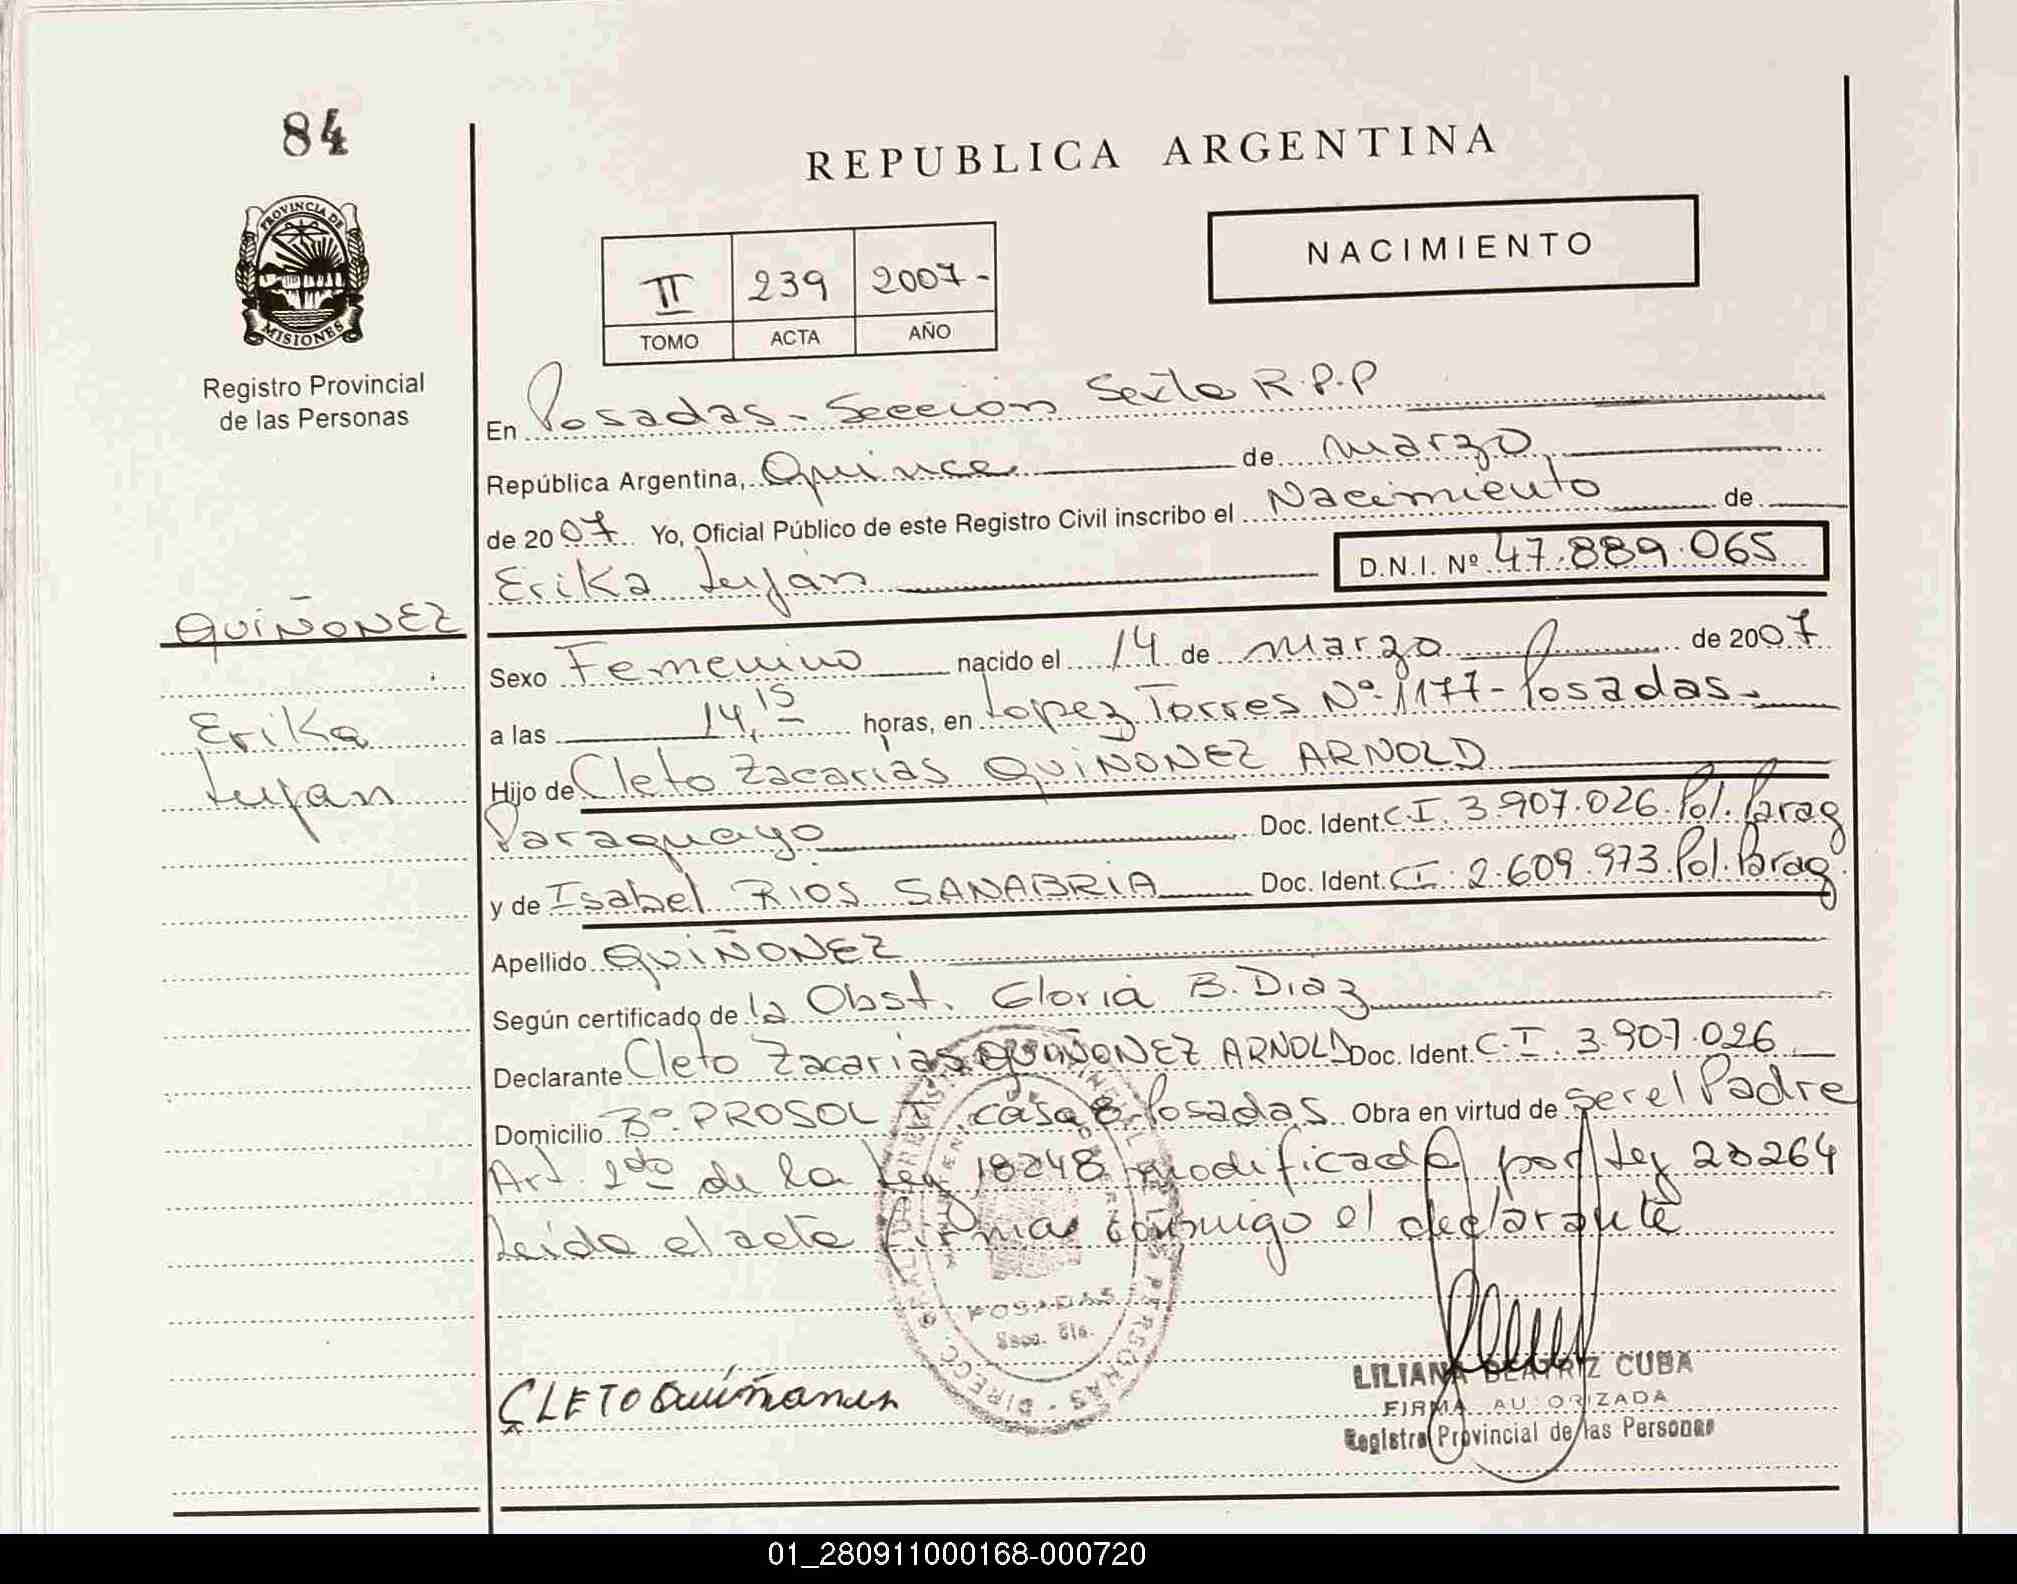 84
PROVINCIA DE
MISIONES
Registro Provincial
de las Personas
REPUBLICA ARGENTINA
NACIMIENTO
II 239 2007-
TOMO ACTA AÑO
En Posadas - Sección Sexta R.P.P
República Argentina, Quince de marzo
de 2007 Yo, Oficial Público de este Registro Civil inscribo el Nacimiento de
Erika Luján
D.N.I. Nº 47.889.065
QUIÑONEZ
Erika
Luján
Sexo Femenino nacido el 14 de marzo de 2007
a las 14,15 horas, en Lopez Torres Nº 1177- Posadas-
Hijo de Cleto Zacarias QUIÑONEZ ARNOLD
Paraguayo Doc. Ident. C I. 3.907.026 Pol. Parag
y de Isabel RIOS SANABRIA Doc. Ident. CI. 2.609.973 Pol. Parag.
Apellido QUIÑONEZ
Según certificado de la Obst. Gloria B. Diaz
Declarante Cleto Zacarias QUIÑONEZ ARNOLD Doc. Ident. C.I. 3.907.026
Domicilio Bº PROSOL I casa 8 Posadas Obra en virtud de ser el Padre
Art. 2do de la Ley 18248 modificada por Ley 23264
Leída el acta firma conmigo el declarante
POSADAS
Secc. 6ta.
CLETO Quiñonez
LILIANA BEATRIZ CUBA
FIRMA AUTORIZADA
Registro Provincial de las Personas
01_280911000168-000720